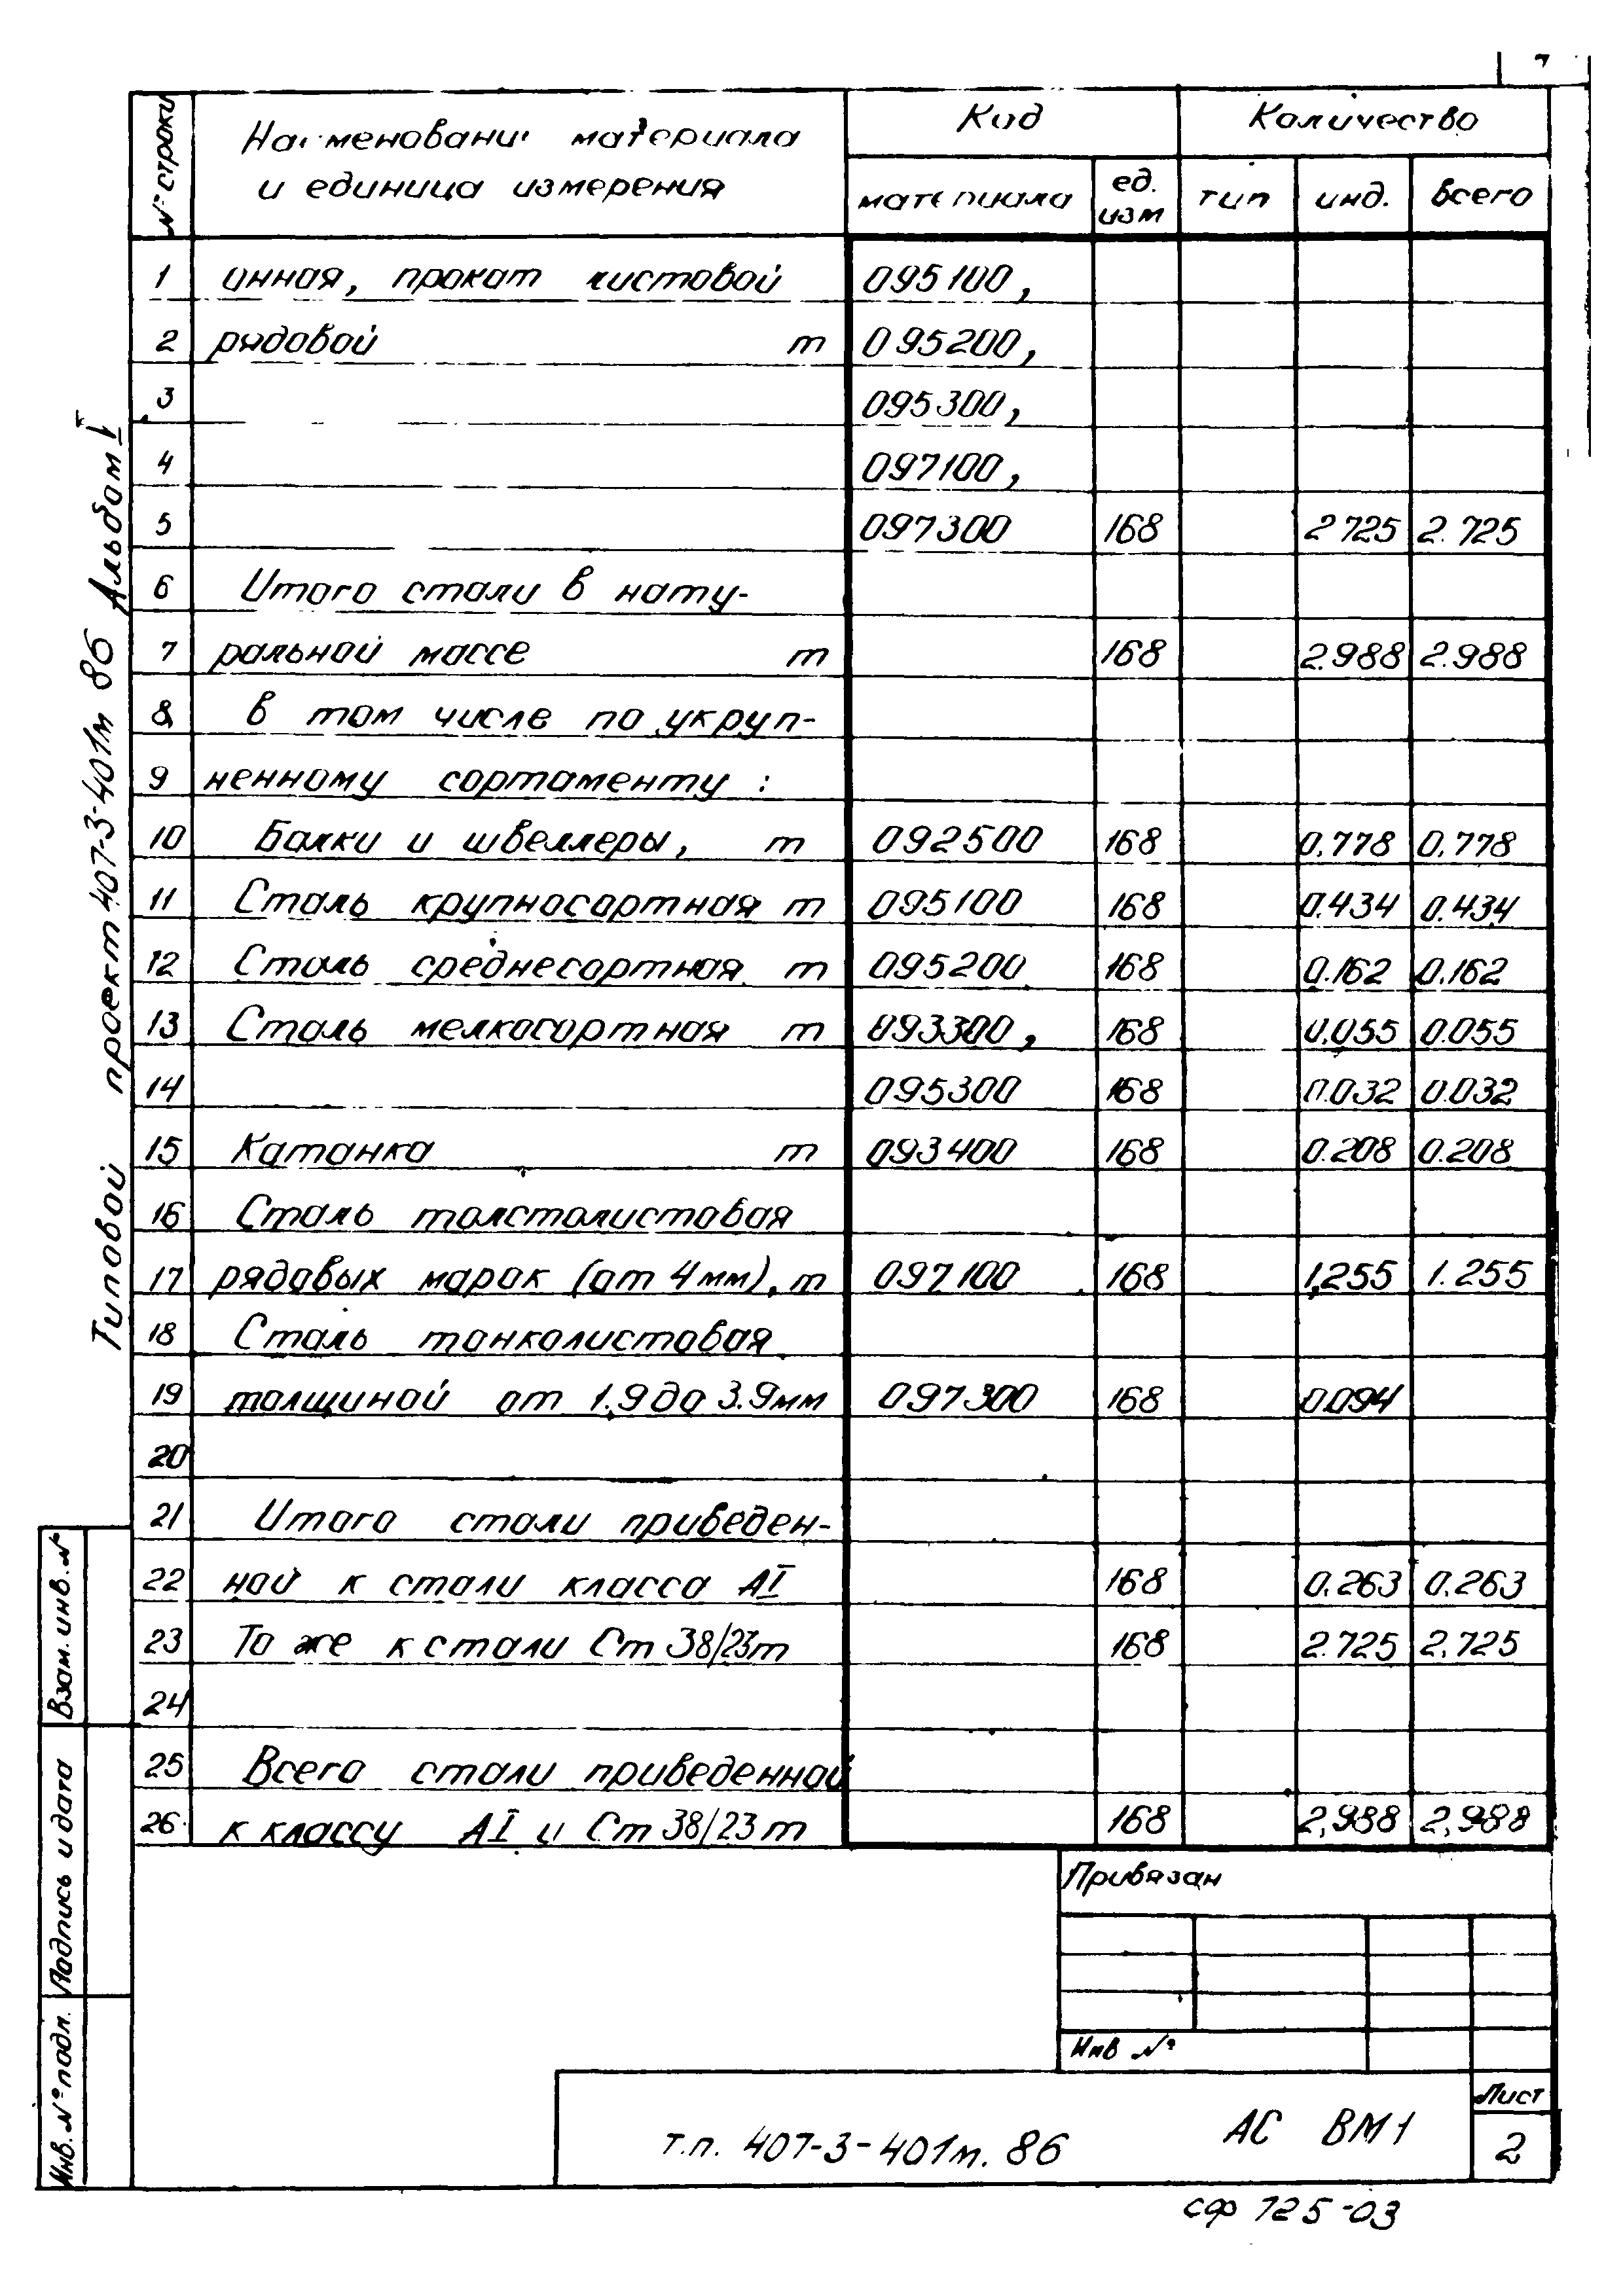 № строки
Наименование материала
и единица измерения
Код
Количество
материала
ед.
изм
тип
инд.
всего
1 онная, прокат листовой 095100,
2 рядовой т 095200,
3 095300,
4 097100,
5 097300 168 2.725 2.725
6 Итого стали в нату-
7 ральной массе т 168 2.988 2.988
8 в том числе по укруп-
9 ненному сортаменту :
10 Балки и швеллеры, т 092500 168 0.778 0.778
11 Сталь крупносортная т 095100 168 0.434 0.434
12 Сталь среднесортная т 095200 168 0.162 0.162
13 Сталь мелкосортная т 093300, 168 0.055 0.055
14 095300 168 0.032 0.032
15 Катанка т 093400 168 0.208 0.208
16 Сталь толстолистовая
17 рядовых марок (от 4мм), т 097100 168 1.255 1.255
18 Сталь тонколистовая
19 толщиной от 1.9 до 3.9мм 097300 168 0.094
20
21 Итого стали приведен-
22 ной к стали класса АI 168 0.263 0.263
23 То же к стали Ст 38/23 т 168 2.725 2.725
24
25 Всего стали приведенной
26 к классу АI и Ст 38/23 т 168 2,988 2,988
Типовой проект 407-3-401м 86 Альбом I
Взам. инв. №
Подпись и дата
Инв. № подл.
Привязан
Инв №
т.п. 407-3-401м. 86
АС ВМ1
Лист
2
сф 725-03